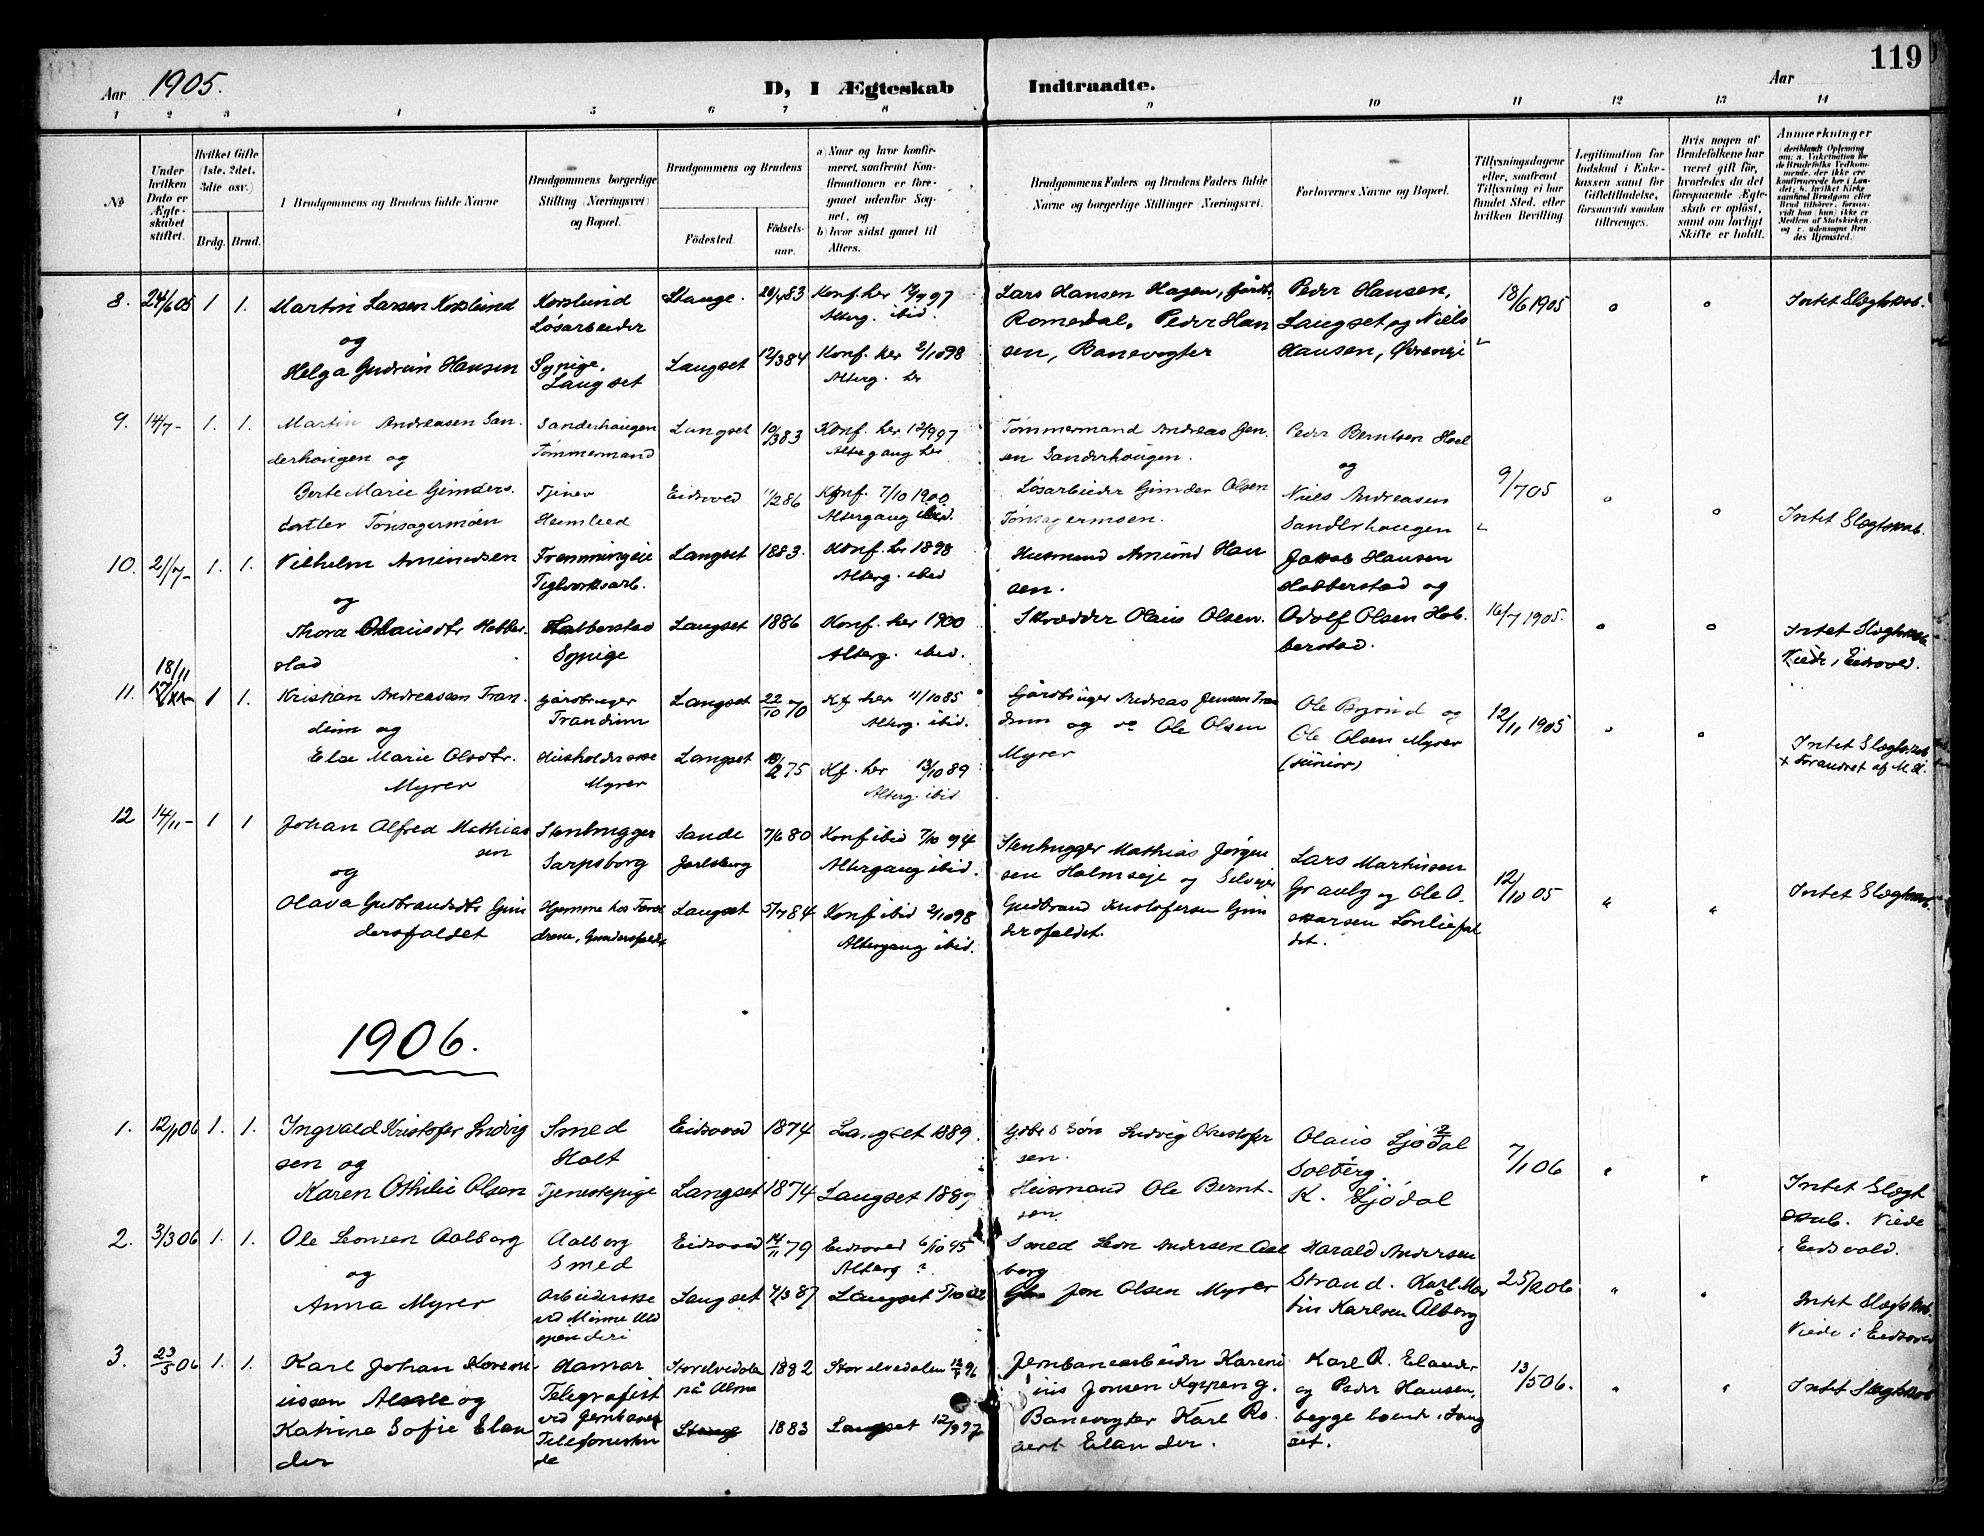 119
Aar 1905. D, I Ægteskab Indtraadte. Aar
1 2 3 4 5 6 7 8 9 10 11 12 13 14
No
Under hvilken Dato er Ægteskabet stiftet.
Hvilket Gifte (1ste, 2det, 3die osv.)
Brdg. Brud.
Brudgommens og Brudens fulde Navne
Brudgommens borgerlige Stilling (Næringsvei) og Bopæl.
Brudgommens og Brudens
Fødested. Fødselsaar.
a) Naar og hvor konfirmeret, saafremt Konfirmationen er foregaaet udenfor Sognet, og
b) hvor sidst gaaet til Alters.
Brudgommens Faders og Brudens Faders fulde Navne og borgerlige Stillinger (Næringsvei).
Forlovernes Navne og Bopæl.
Tillysningsdagene eller, saafremt Tillysning ei har fundet Sted, efter hvilken Bevilling.
Legitimation for Indskud i Enkekassen samt for Giftetilladelse, forsaavidt saadan tiltrænges.
Hvis nogen af Brudefolkene har været gift før, hvorledes da det foregaaende Ægteskab er opløst, samt om lovligt Skifte er holdt.
Anmerkninger
8. 24/6 05 1 1. Martin Larsen Korslund Korslund Stange. 20/4 83 Konf. her 97 Lars Hansen Hagen, Peder Hansen, 18/6 1905 Intet Slegtskab.
Løsarbeider Alterg. ibid. Romedal. Peder Han Langset og Niels
og
Helga Gudrun Hansen Sypige. Langset 12/3 84 Konf. her 2/10 98 sen, Banevogter Hansen,
Langset Alterg. her
9. 14/7 - 1. 1. Martin Andreasen San Sanderhaugen Langset 10/3 83 Konf. her 12/9 97 Tømmermand Andreas Jen Peder Berntsen Hoel
derhaugen og Tømmermand Altergang her sen Sanderhaugen. og
Berte Marie Gunders Tjener Eidsvold 11/2 86 Konf. 7/10 1900 Løsarbeider Gunder Olsen Niels Andreasen 9/7 05
datter Tønsagermoen Hemleed Altergang ibid. Tønsagermoen. Sanderhaugen Intet Slegtskab.
10. 21/7 - 1. 1. Vilhelm Amundsen Langset 1883. Konf. her 1898 Husmand Amund Han Jakob Hansen
Teglverksarb. Alterg. ibid sen. Habberstad og
og
Thora Olausdtr Habber Habberstad Langset 1886 Konf. her 1900 Skrædder Olaus Olsen. Adolf Olsen Hab 16/7 1905. Intet Slegtskab.
stad Sypige Alterg. ibid. berstad. Viede i Eidsvold.
18/11
11. 1 1. Kristian Andreassen Tran Gårdbruger Langset 22/10 70 Kf her 11/10 85 Gårdbruger Andreas Jensen Tran Ole og 12/11 1905
dum og Trandum Alterg. ibid. dum og do Ole Olsen Ole Olsen Myrer
Else Marie Olsdtr. Husholderske Langset 75 Kf. her 13/10 89 Myrer (junior) Intet Slegtskab
Myrer Myrer Alterg. ibid + Forandret af M.H.
12 14/11 - 1 1 Johan Alfred Mathias Stenhugger Sande 7/6 80 Konf ibid 7/10 94 Stenhugger Mathias Jørgen Lars Martinsen
sen Sarpsborg Jarlsberg Altergang ibid. sen Holmseje og Selveier Graaly og Ole O 12/10 05 Intet Slegtskab.
og
Olava Gudbrandsdtr Gun Hjemme hos Foræl Langset 5/7 84 Konf ibid 2/10 98 Gudbrand Kristofersen Gun skarsen Lønliefal
dersfaldet drene, Gundersfaldet Altergang ibid. dersfaldet. det.
1906.
1. 12/1 06 1. 1. Ingvald Kristofer Ludvig Smed Eidsvold 1874 Langset 1889. Ludvig Kristofer Olaus Ljødal
sen og Holt sen. Solberg. 7/1 06
Karen Othilie Olsen Tjenestepige Langset 1874 Langset 1889 Husmand Ole Bernt- K. Ljødal Intet Slegt
sen. skab. Viede
2. 3/3 06 1. 1. Ole Leonsen Aalborg Aalborg Eidsvold 14/11 79 Eidsvold 6/10 95 Smed Leon Andersen Aal Harald Andersen i Eidsvold.
Smed Alterg ? borg
og
Anna Myrer Arbeiderske Langset 4/3 87 Langset Jon Olsen Myrer Strand. Karl Mar 25/2 06 Intet Slegtskab.
ved Minne tin Karlsen Ålborg Viede i Eidsvold
3. 23/5 06 1. 1. Karl Johan Hamar Storelvedalen 1882 Storelvedalen Jernbanearbeider Karl R. Elander 13/5 06. Intet Slegtskab
og Telegrafist Jonsen Koppang. og Peder Hansen,
Katrine Sofie Elan ved Jernbanen Stange 1883 Langset 12/9 97 Banevogter Karl Ro begge boende i Lang
der Telefonistin bert Elander. set.
de